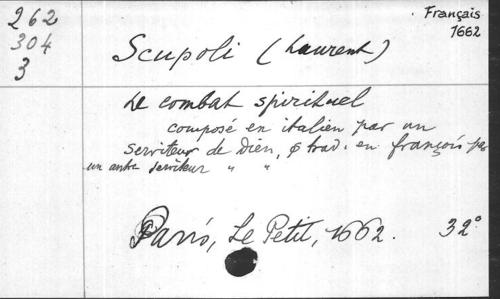 262
304
3
Français
1662
Scupoli (Laurent)
Le combat spirituel
composé en italien par un
serviteur de Dieu, & trad. en françois par
un autre serviteur " "
Paris, Le Petit, 1662. 32°